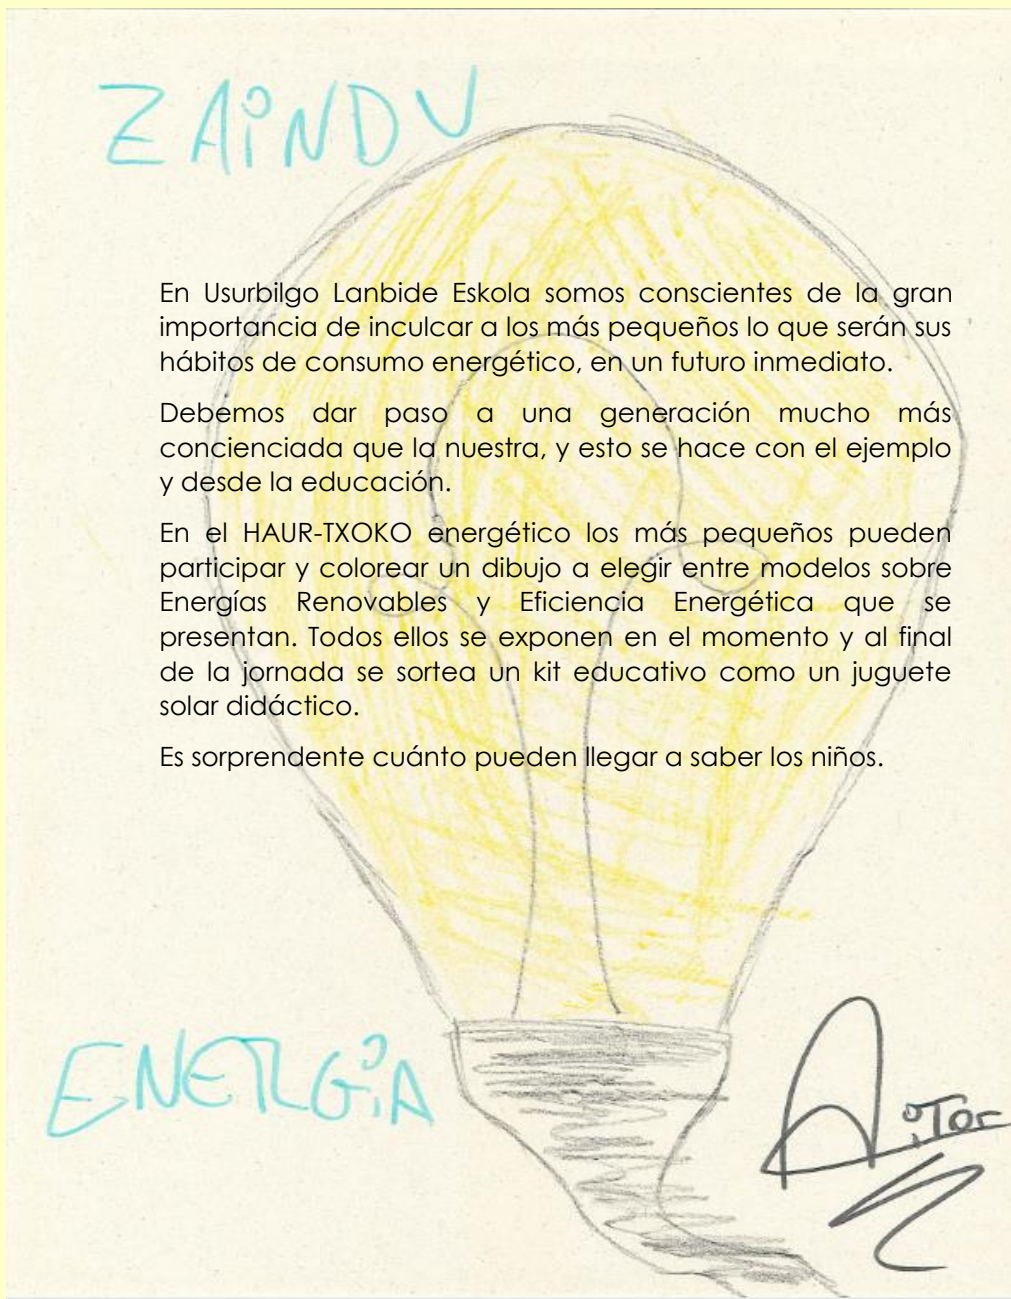 ZAINDU
En Usurbilgo Lanbide Eskola somos conscientes de la gran
importancia de inculcar a los más pequeños lo que serán sus
hábitos de consumo energético, en un futuro inmediato.
Debemos dar paso a una generación mucho más
concienciada que la nuestra, y esto se hace con el ejemplo
y desde la educación.
En el HAUR-TXOKO energético los más pequeños pueden
participar y colorear un dibujo a elegir entre modelos sobre
Energías Renovables y Eficiencia Energética que se
presentan. Todos ellos se exponen en el momento y al final
de la jornada se sortea un kit educativo como un juguete
solar didáctico.
Es sorprendente cuánto pueden llegar a saber los niños.
ENERGiA
AiTor